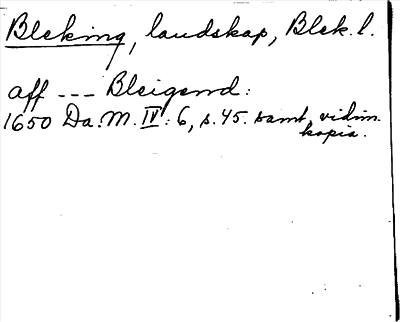 Bleking, landskap, Blek. l.
aff --- Bleigennd:
1650 Da. M. IV: 6, s. 45. samt, vidim.
kopia.